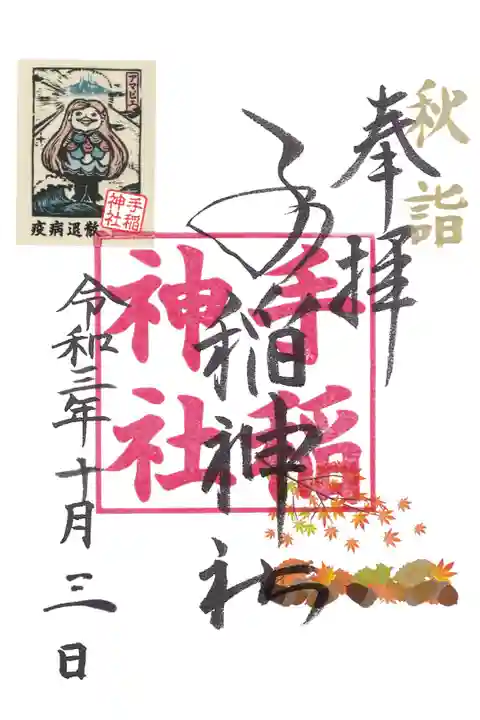 秋詣
奉拝
手稲神社
手稲神社
令和三年十月三日
アマビエ
手稲神社
疫病退散